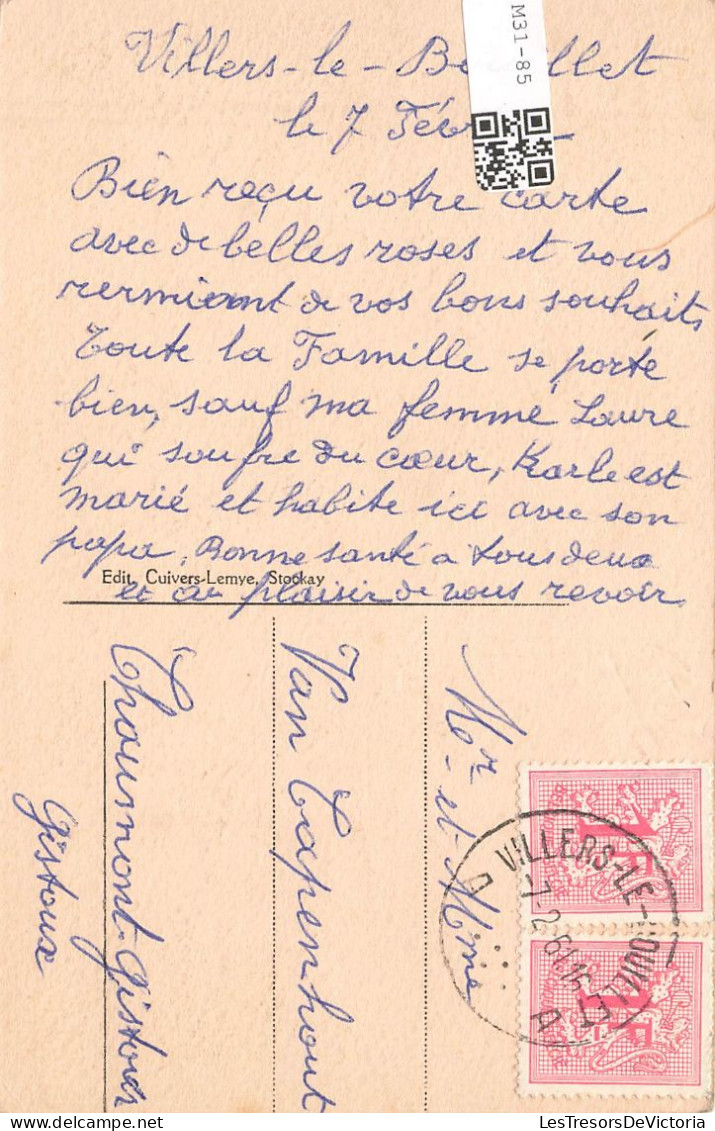 M31-85
Villers-le-Bouillet
le 7 Fév
Bien reçu votre carte
avec de belles roses et vous
remieront de vos bons souhaits
Toute la Famille se porte
bien, sauf ma femme Laure
qui soufre du cœur, Karle est
marié et habite ici avec son
papa, Bonne santé a tous deux
et au plaisir de vous revoir.
Edit. Cuivers-Lemye, Stockay
Mr et Mme
Van Capenhout
Chaumont-Gistoux
Gistoux
VILLERS-LE-BOUILLET
7-2 61 16
A
1F
1F
LesTresorsDeVictoria